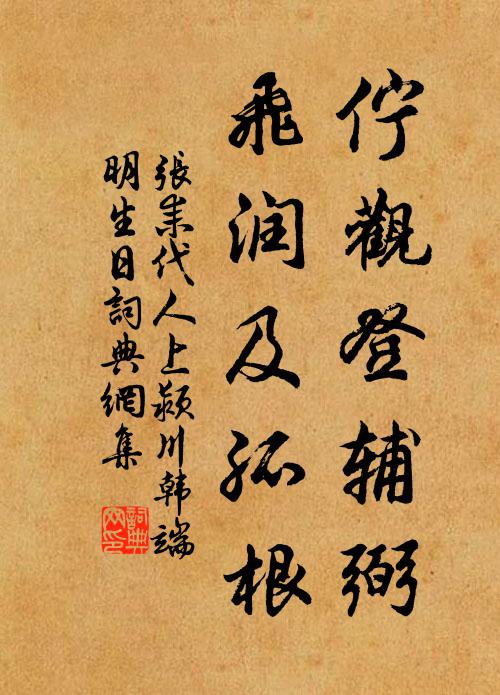 佇觀登辅弼
飛润及孤根
張耒代人上颍川韩端
明生日詞典網集
詞典网印